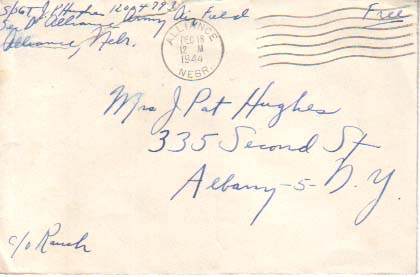 S/Sgt J P Hughes
Sec D Alliance Army Air Field
Alliance, Nebr.
ALLIANCE
DEC 18
12 M
1944
NEBR.
Free
Mrs J Pat Hughes
335 Second St
Albany-5-N.Y.
c/o Rauch